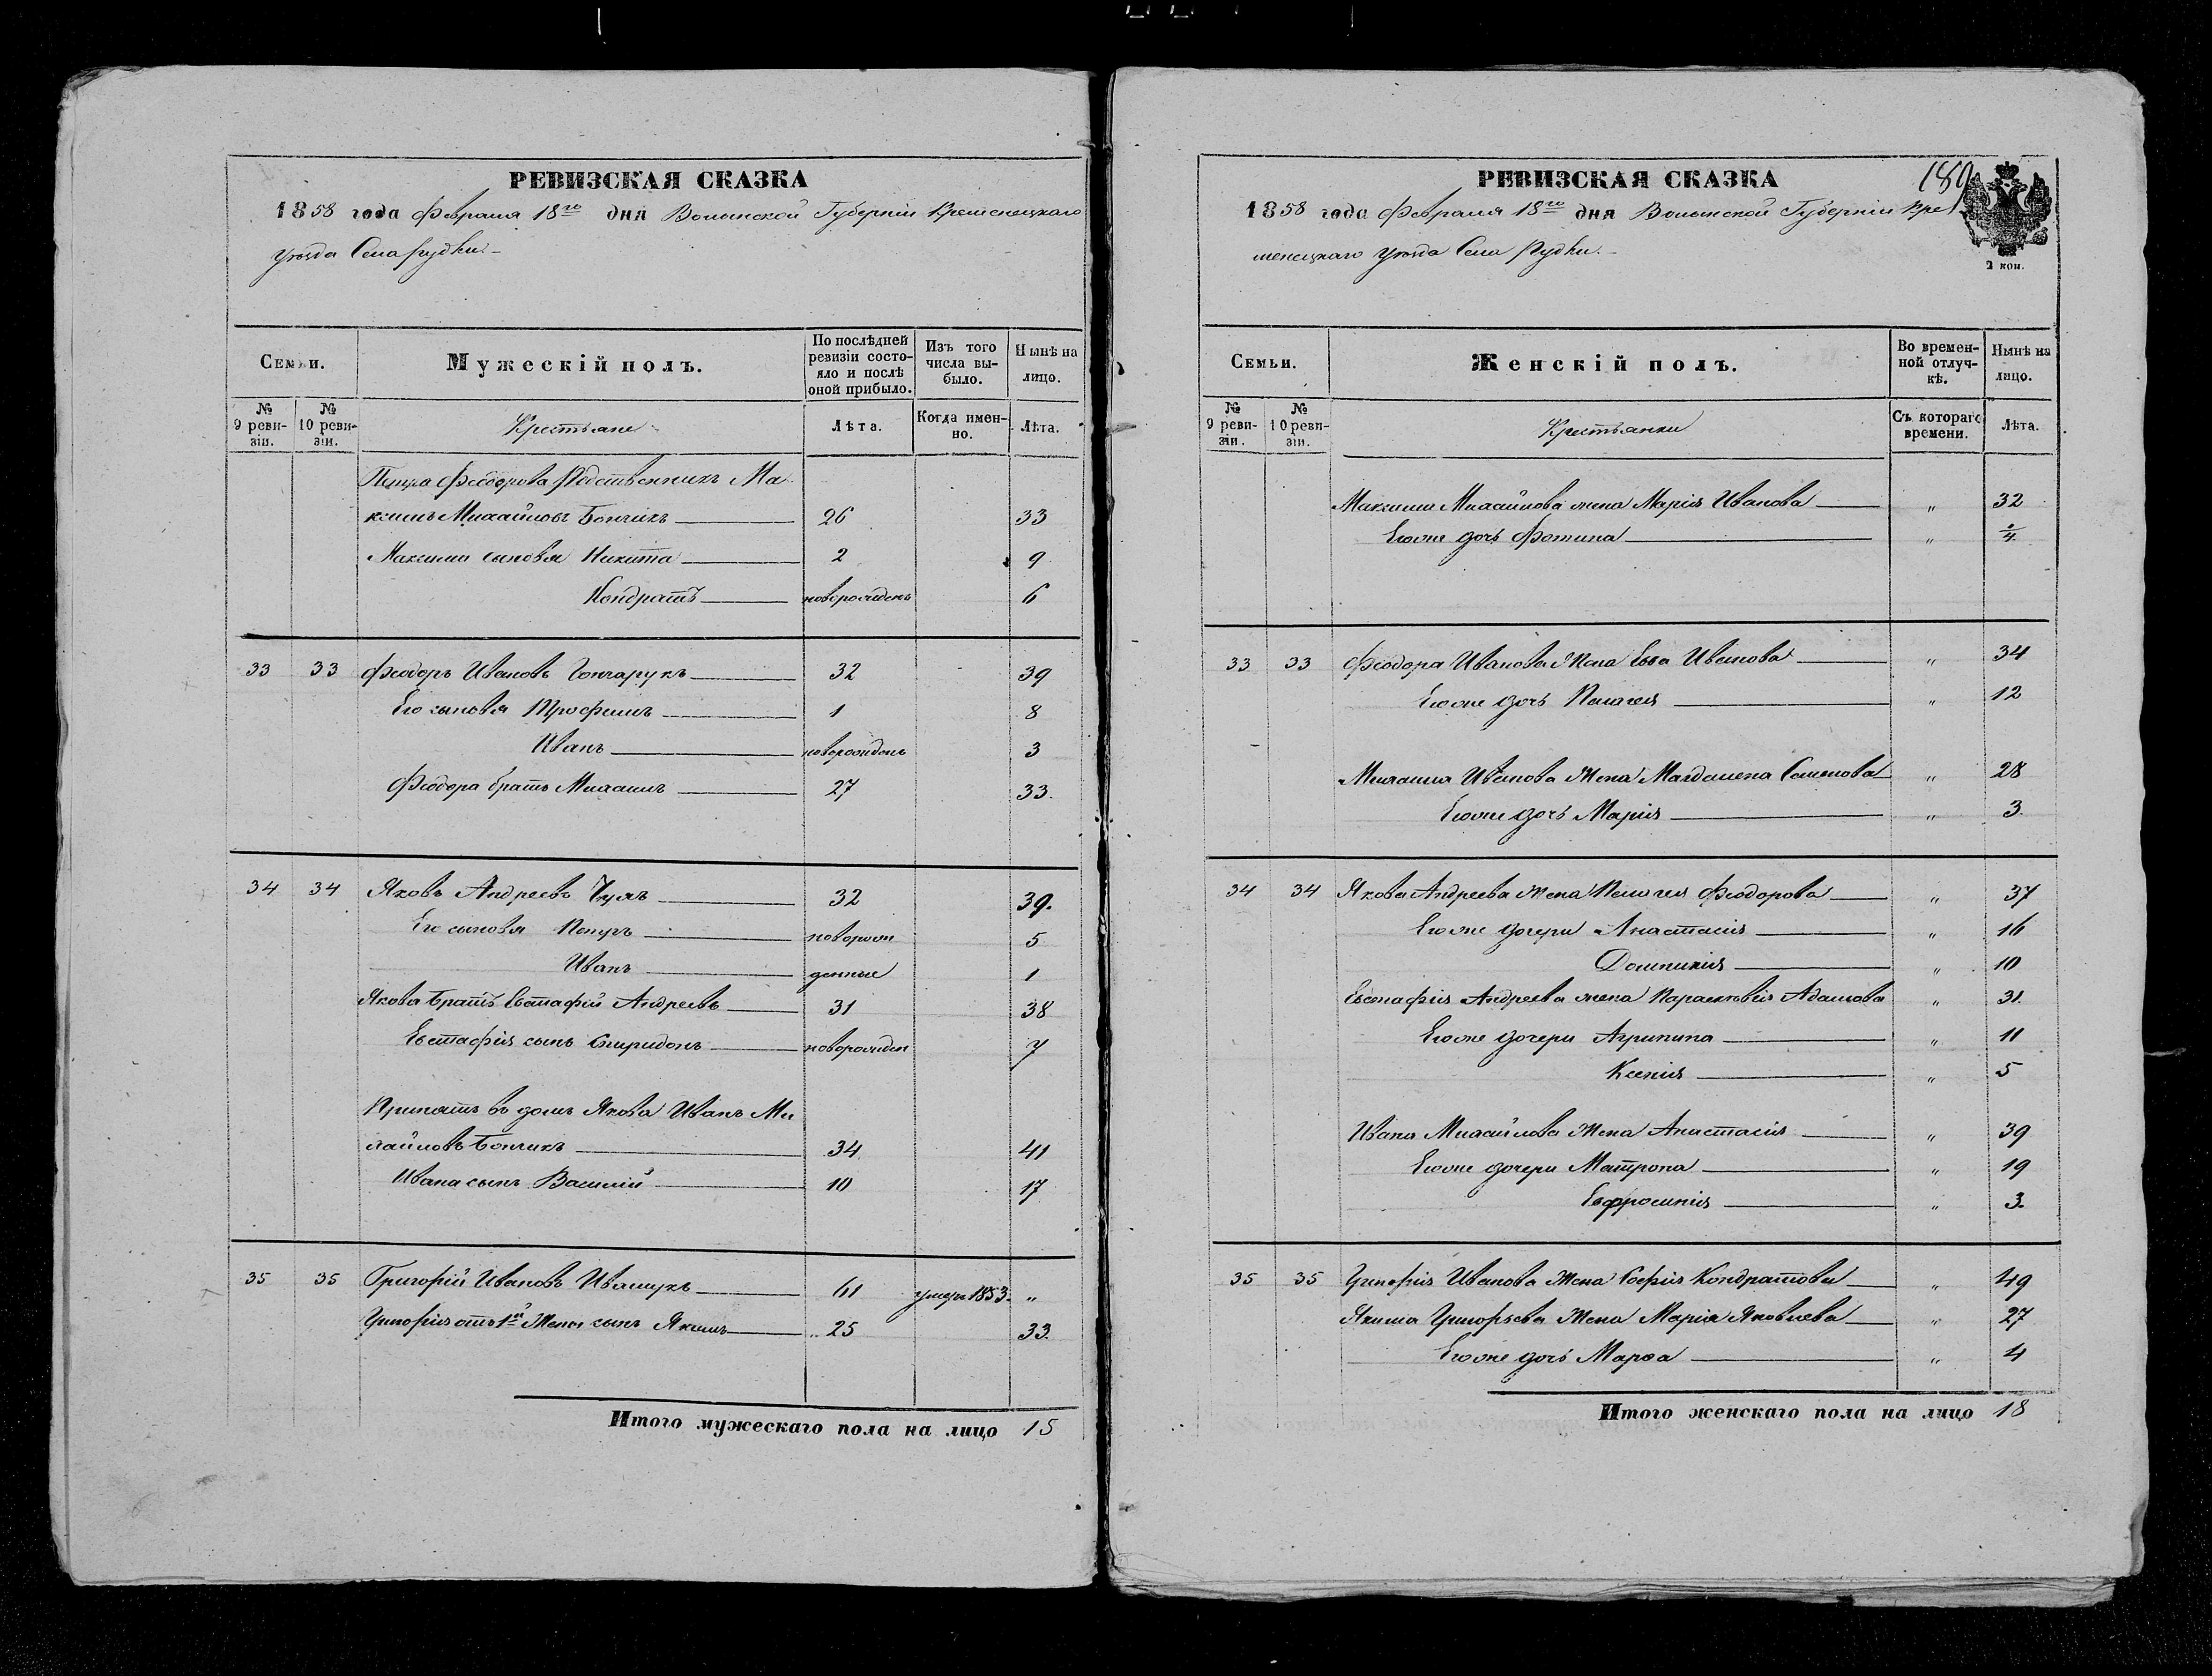 РЕВИЗСКАЯ СКАЗКА
1858 года Февраля 18го дня Волынской Губерніи Кременецкаго
уѣзда Села Рудки.-
Семьи.
Мужескій полъ.
По послѣдней ревизіи состояло и послѣ оной прибыло.
Изъ того числа выбыло.
Нынѣ на лицо.
№ 9 ревизіи.
№ 10 ревизіи.
Крестьяне
Лѣта.
Когда именно.
Лѣта.
Петра Феодорова Родственникъ Ма
ксимъ Михайловъ Бончикъ 26 33
Максима сыновья Никита 2 9
Кондратъ новорожденъ 6
33 33 Феодоръ Ивановъ Гончарукъ 32 39
Его сыновья Трофимъ 1 8
Иванъ новорожденъ 3
Феодора братъ Михаилъ 27 33.
34 34 Яковъ Андреевъ 32 39.
Его сыновья Петръ новорож 5
Иванъ денные 1
Якова Братъ Евстафій Андреевъ 31 38
Евстафія сынъ Спиридонъ новорожден 7
Принятъ въ домъ Якова Иванъ Ми
хайловъ Бончикъ 34 41
Ивана сынъ Василій 10 17
35 35 Григорій Ивановъ Иващукъ 61 умеръ 1853. "
Григорія отъ 1й Жены сынъ Якимъ 25 33.
Итого мужескаго пола на лицо 15
РЕВИЗСКАЯ СКАЗКА
189
1858 года Февраля 18го дня Волынской Губерніи Кре
менецкаго уѣзда Села Рудки.-
2 коп.
Семьи.
Женскій полъ.
Во временной отлучкѣ.
Нынѣ на лицо.
№ 9 ревизіи.
№ 10 ревизіи.
Крестьянки
Съ котораго времени.
Лѣта.
Максима Михайлова жена Марія Иванова " 32
Егоже дочь Фотина "
33 33 Феодора Иванова Жена Ева Иванова " 34
Егоже дочь Пелагея " 12
Михаила Иванова Жена Магдалена Семенова " 28
Егоже дочь Марія " 3.
34 34 Якова Андреева Жена Пелагея Феодорова " 37
Егоже дочери Анастасія " 16
Домникія " 10
Евстафія Андреева жена Параскевія Адамова 31.
Егоже дочери Агрипина " 11
Ксенія " 5
Ивана Михайлова Жена Анастасія " 39
Егоже дочери Матрона " 19
Евфросинія " 3.
35 35 Григорія Иванова Жена Софія Кондратова " 49
Якима Григорьева Жена Марія Яковлева " 27
Егоже дочь Марѳа " 4
Итого женскаго пола на лицо 18